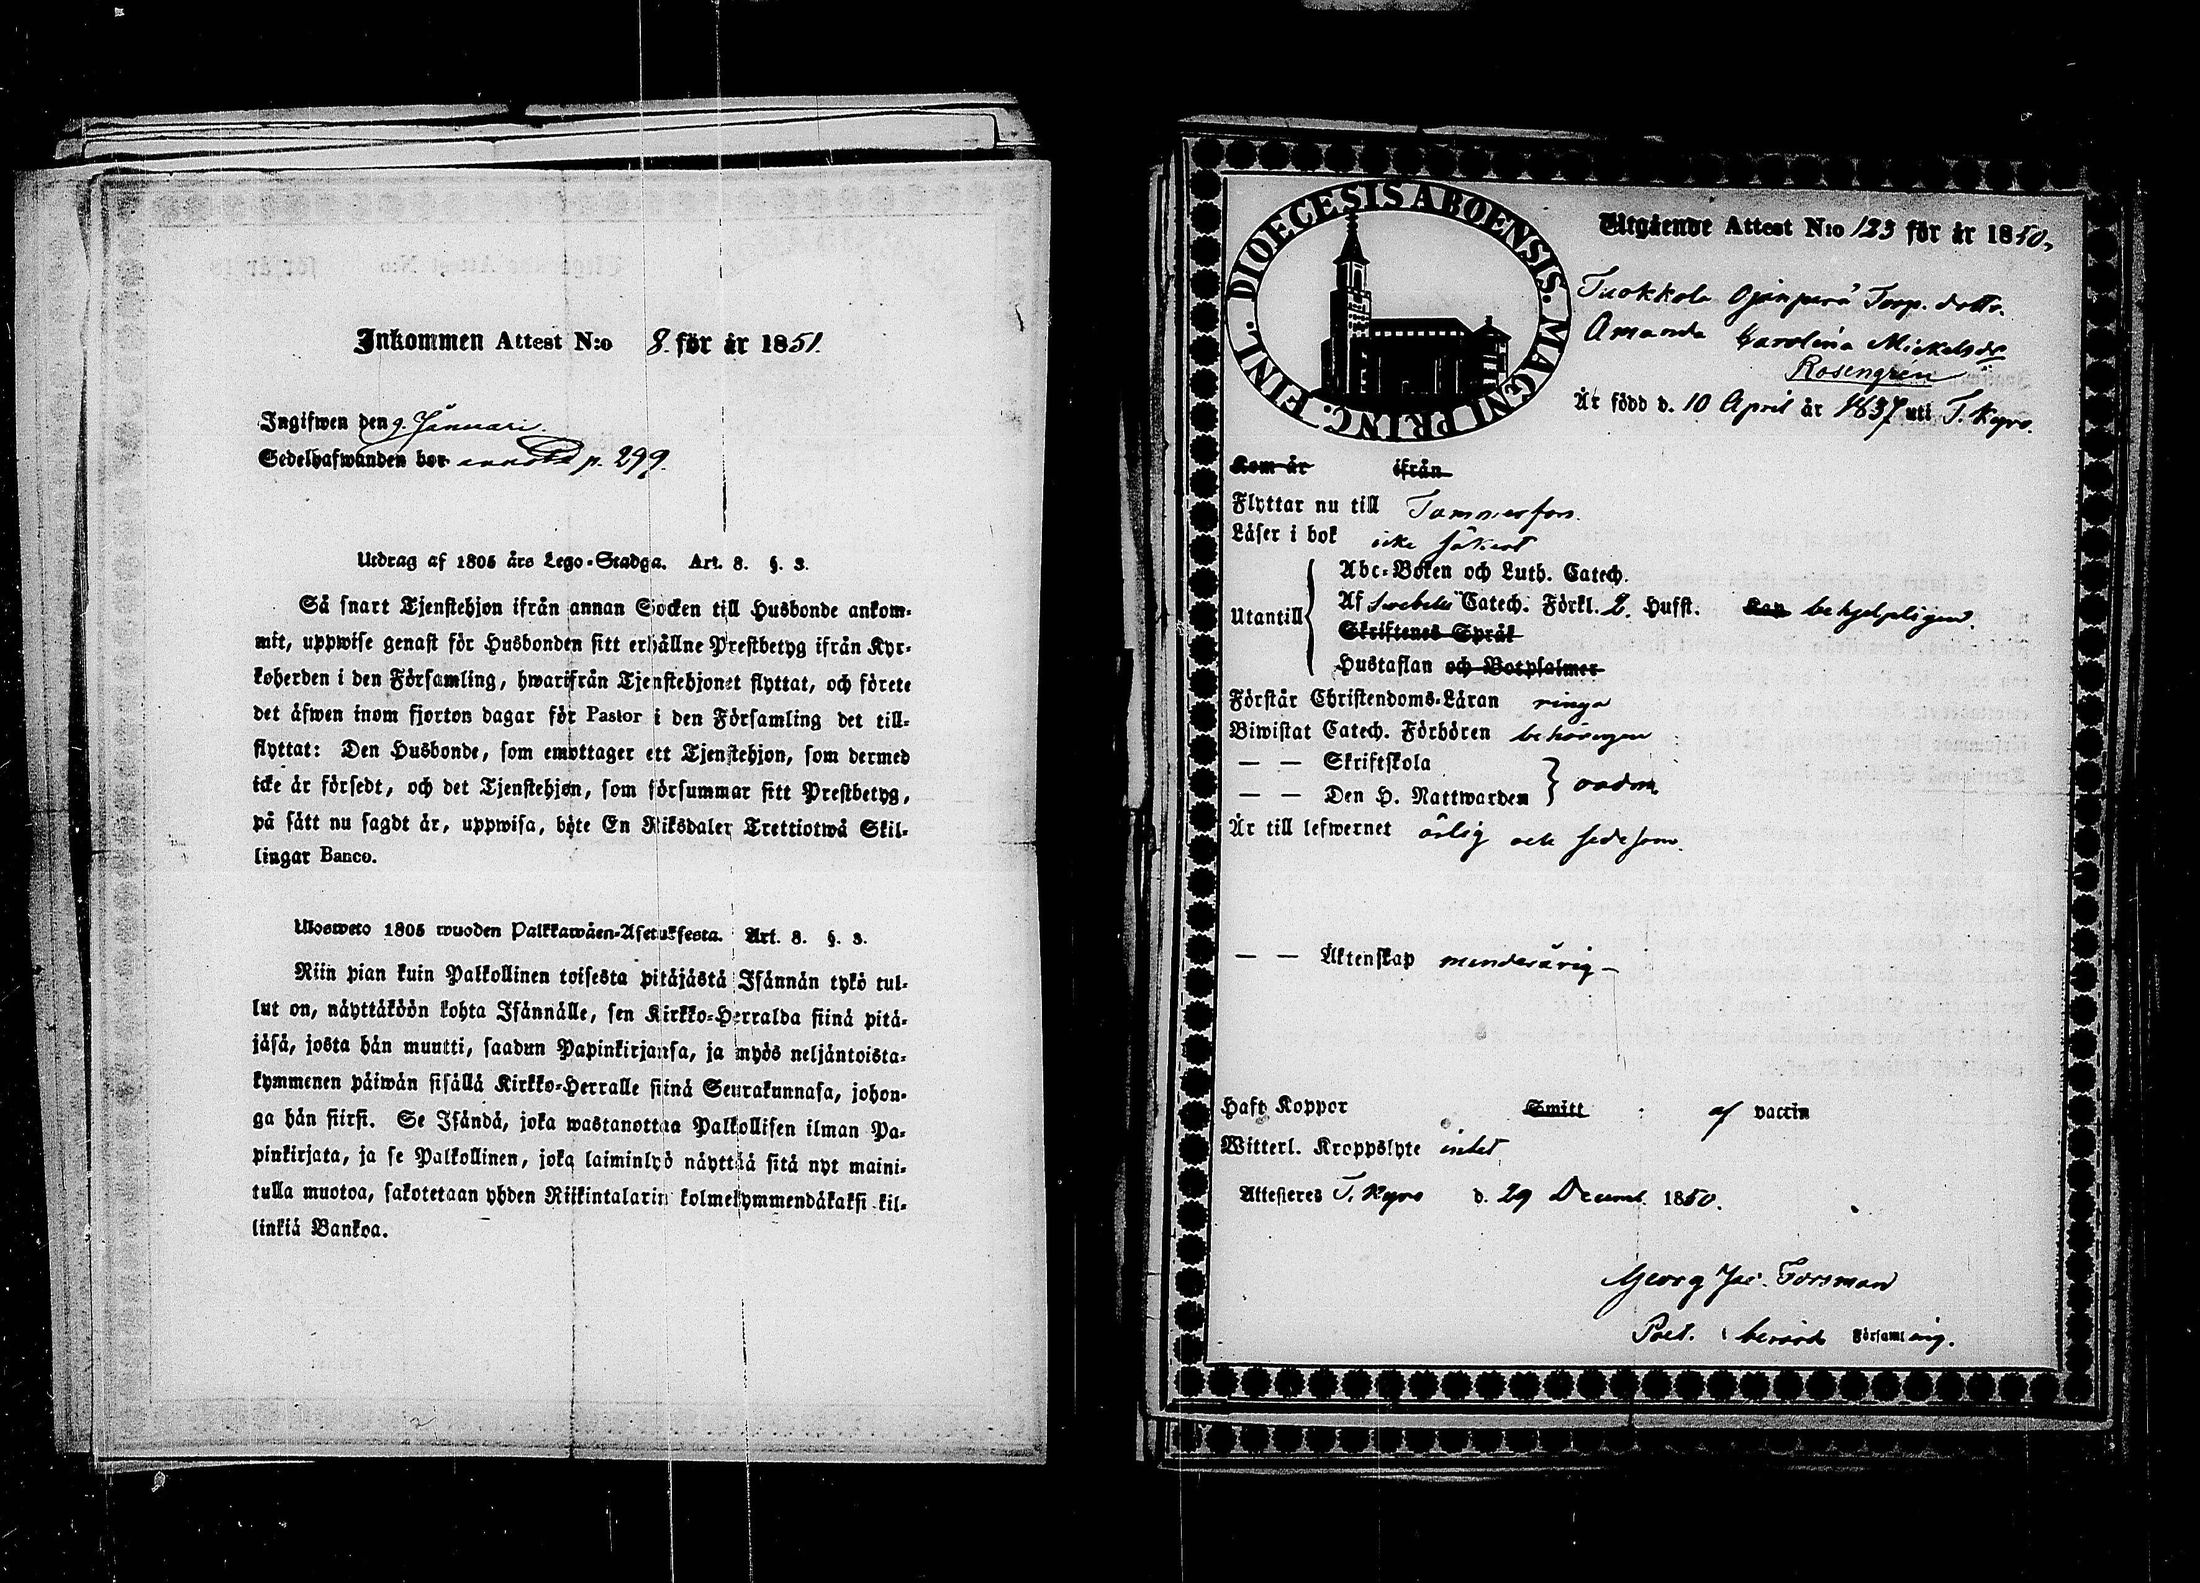 Inkommen Attest N:o 8. för år 1851.
Ingifwen den 9. Januari.
Sedelhafwanden bor p. 299.
Utdrag af 1805 års Lego-Stadga. Art. 8. §. 3.
Så snart Tjenstehjon ifrån annan Socken till Husbonde ankom-
mit, uppwise genast för Husbonden sitt erhållne Prestbetyg ifrån Kyr-
koherden i den Församling, hwarifrån Tjenstehjonet flyttat, och förete
det äfwen inom fjorton dagar för Pastor i den Församling det till-
flyttat: Den Husbonde, som emottager ett Tjenstehjon, som dermed
icke är försedt, och det Tjenstehjon, som försummar sitt Prestbetyg,
på sätt nu sagdt är, uppwisa, böte En Riksdaler Trettiotwå Skil-
lingar Banco.
Ulosweto 1805 wuoden Palkkawäen-Asetuksesta. Art. 8. §. 3.
Niin pian kuin Palkollinen toisesta pitäjästä Isännän tykö tul-
lut on, näyttäköön kohta Isännälle, sen Kirkko-Herralda siinä pitä-
jäsä, josta hän muutti, saadun Papinkirjansa, ja myös neljäntoista-
kymmenen päiwän sisällä Kirkko-Herralle siinä Seurakunnasa, johon-
ga hän siirsi. Se Isändä, joka wastanottaa Palkollisen ilman Pa-
pinkirjata, ja se Palkollinen, joka laiminlyö näyttää sitä nyt maini-
tulla muotoa, sakotetaan yhden Riikintalarin kolmekymmendäkaksi kil-
linkiä Bankoa.
FINL. DIOECESIS ABOENSIS. MAGNI PRINC.
Utgående Attest N:o 123 för år 1850,
Tuokkola Ojanperä Torp. dottr.
Amanda Carolina Mickelsdr
Rosengren
Är född d. 10 April år 1837 uti T. Kyro.
Kom år ifrån
Flyttar nu till Tammerfors.
Läser i bok icke säkert
Abc-Boken och Luth. Catech.
Utantill Af Swebelii Catech. Förkl. 2. Hufst. Kan behjelpligen.
Skriftenes Språk
Hustaflan och Botpsalmer
Förstår Christendoms-Läran ringa
Biwistat Catech. Förhören behörigen
— — Skriftskola
— — Den H. Nattwarden oadm.
Är till lefwernet ärlig och sedesam.
— — Äktenskap minderårig —
Haft Koppor Smitt af vaccin
Witterl. Kroppslyte intet
Attesteres T. Kyro d. 29 Decemb. 1850.
Georg Jac. Forsman
Past. i berörd Församling.